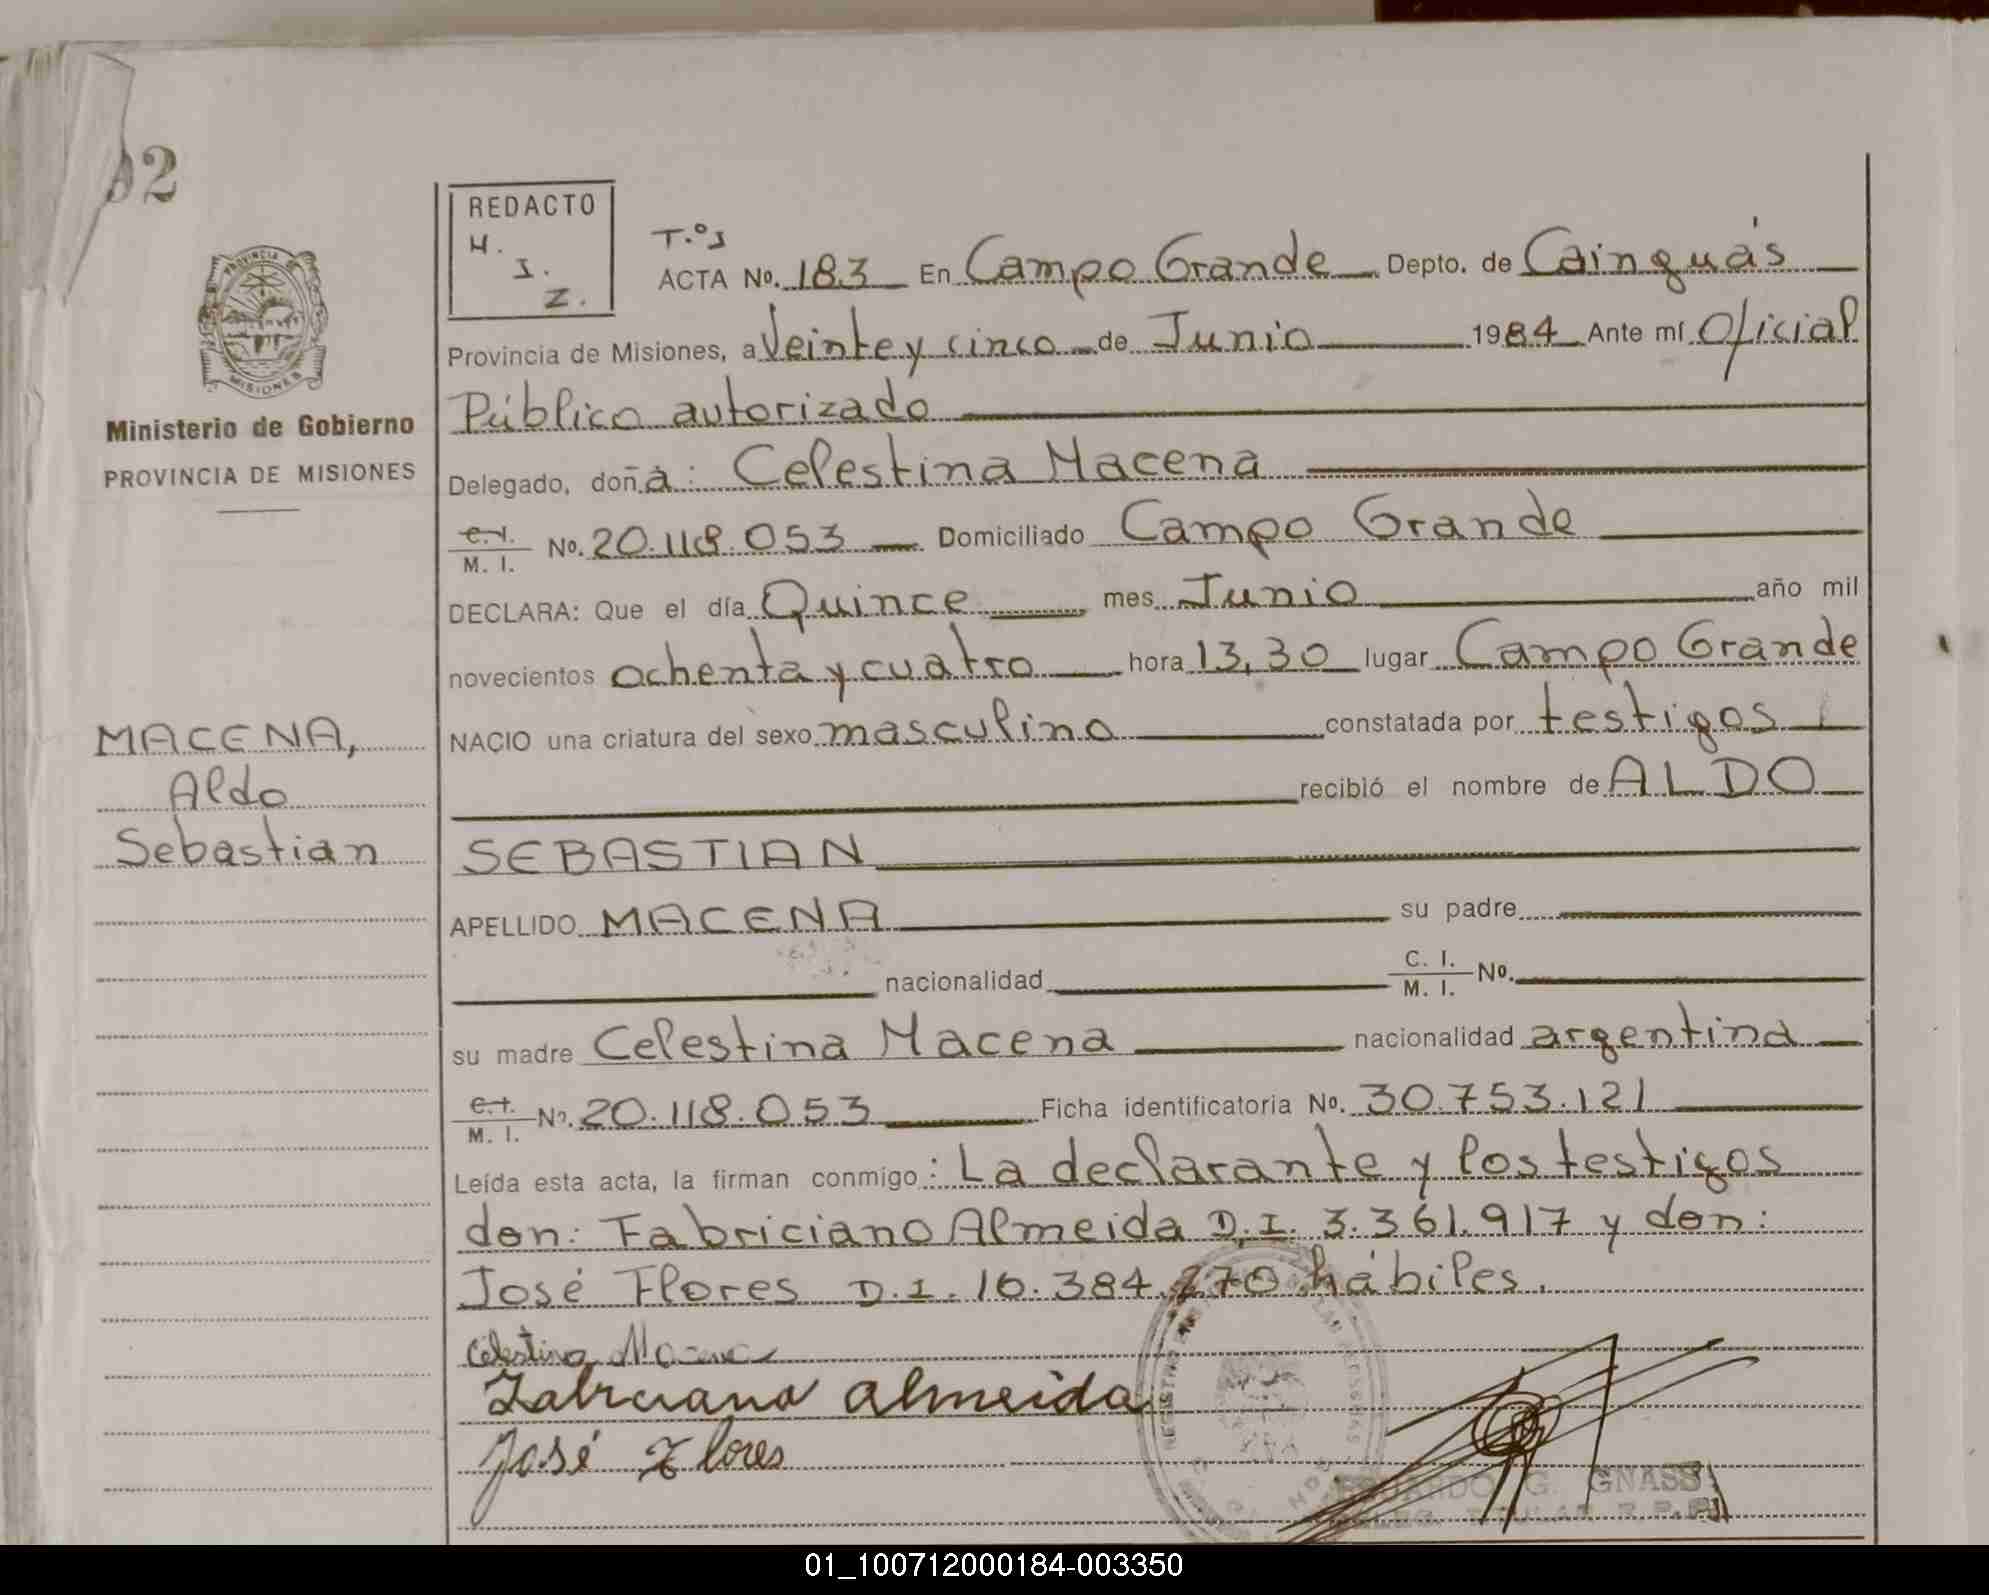 02
REDACTO
H.
I.
Z.
T.º I
ACTA No. 183 En Campo Grande Depto. de Cainguás
Provincia de Misiones, a Veinte y cinco de Junio 1984 Ante mí Oficial
Público autorizado
Delegado, doña: Celestina Macena
C.I. M. I. No. 20.118.053 Domiciliado Campo Grande
DECLARA: Que el día Quince mes Junio año mil
novecientos ochenta y cuatro hora 13,30 lugar Campo Grande
NACIO una criatura del sexo masculino constatada por testigos
recibió el nombre de ALDO
SEBASTIAN
APELLIDO MACENA su padre
nacionalidad C. I. M. I. No.
su madre Celestina Macena nacionalidad argentina
C.I. M. I. No. 20.118.053 Ficha identificatoria No. 30.753.121
Leída esta acta, la firman conmigo: La declarante y los testigos
don: Fabriciano Almeida D.I. 3.361.917 y don:
José Flores D.I. 10.384.270 hábiles.
Celestina Macena
Fabriciano Almeida
José Flores
G. GNASS
PROVINCIA DE
MISIONES
Ministerio de Gobierno
PROVINCIA DE MISIONES
MACENA,
Aldo
Sebastian
01_100712000184-003350